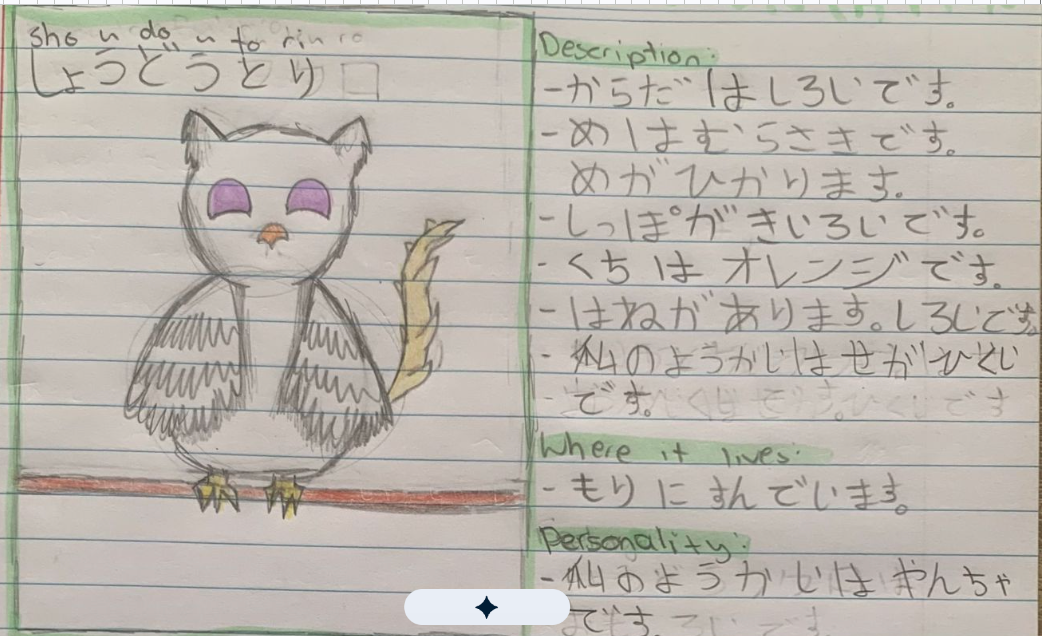 sho u do u to ri
しょうどうとり
Description:
-からだはしろいです。
-めはむらさきです。
めがひかります。
-しっぽがきいろいです。
-くちはオレンジです。
-はねがあります。しろいです。
-私のようかいはせがひくい
です。
Where it lives:
-もりにすんでいます。
Personality:
-私のようかいはやんちゃ
です。